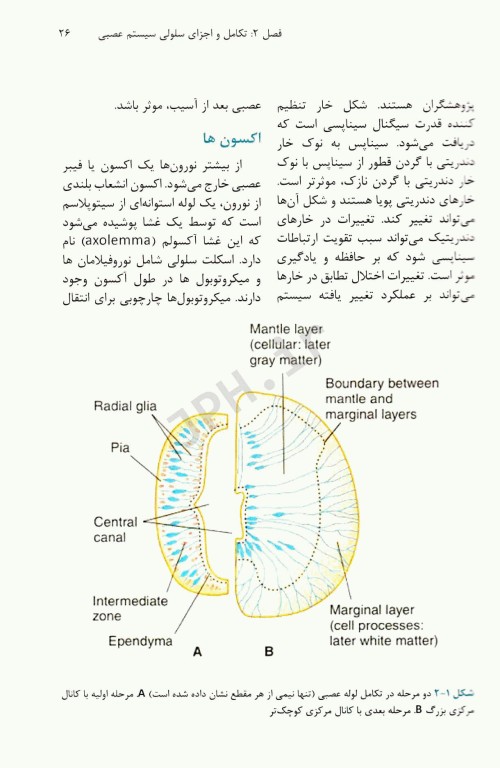 فصل ۲: تکامل و اجزای سلولی سیستم عصبی ۲۶
پژوهشگران هستند. شکل خار تنظیم
کننده قدرت سیگنال سیناپسی است که
دریافت می‌شود. سیناپس به نوک خار
دندریتی با گردن قطور از سیناپس با نوک
خار دندریتی با گردن نازک، موثرتر است.
خارهای دندریتی پویا هستند و شکل آن‌ها
می‌تواند تغییر کند. تغییرات در خارهای
دندریتیک می‌تواند سبب تقویت ارتباطات
سیناپسی شود که بر حافظه و یادگیری
موثر است. تغییرات اختلال تطابق در خارها
می‌تواند بر عملکرد تغییر یافته سیستم
عصبی بعد از آسیب، موثر باشد.
اکسون ها
از بیشتر نورون‌ها یک اکسون یا فیبر
عصبی خارج می‌شود. اکسون انشعاب بلندی
از نورون، یک لوله استوانه‌ای از سیتوپلاسم
است که توسط یک غشا پوشیده می‌شود
که این غشا آکسولم (axolemma) نام
دارد. اسکلت سلولی شامل نوروفیلامان ها
و میکروتوبول ها در طول آکسون وجود
دارند. میکروتوبول‌ها چارچوبی برای انتقال
Mantle layer
(cellular: later
gray matter)
Boundary between
mantle and
marginal layers
Radial glia
Pia
Central
canal
Intermediate
zone
Ependyma
Marginal layer
(cell processes:
later white matter)
A
B
شکل ۱-۲ دو مرحله در تکامل لوله عصبی (تنها نیمی از هر مقطع نشان داده شده است) A. مرحله اولیه با کانال
مرکزی بزرگ B. مرحله بعدی با کانال مرکزی کوچک‌تر